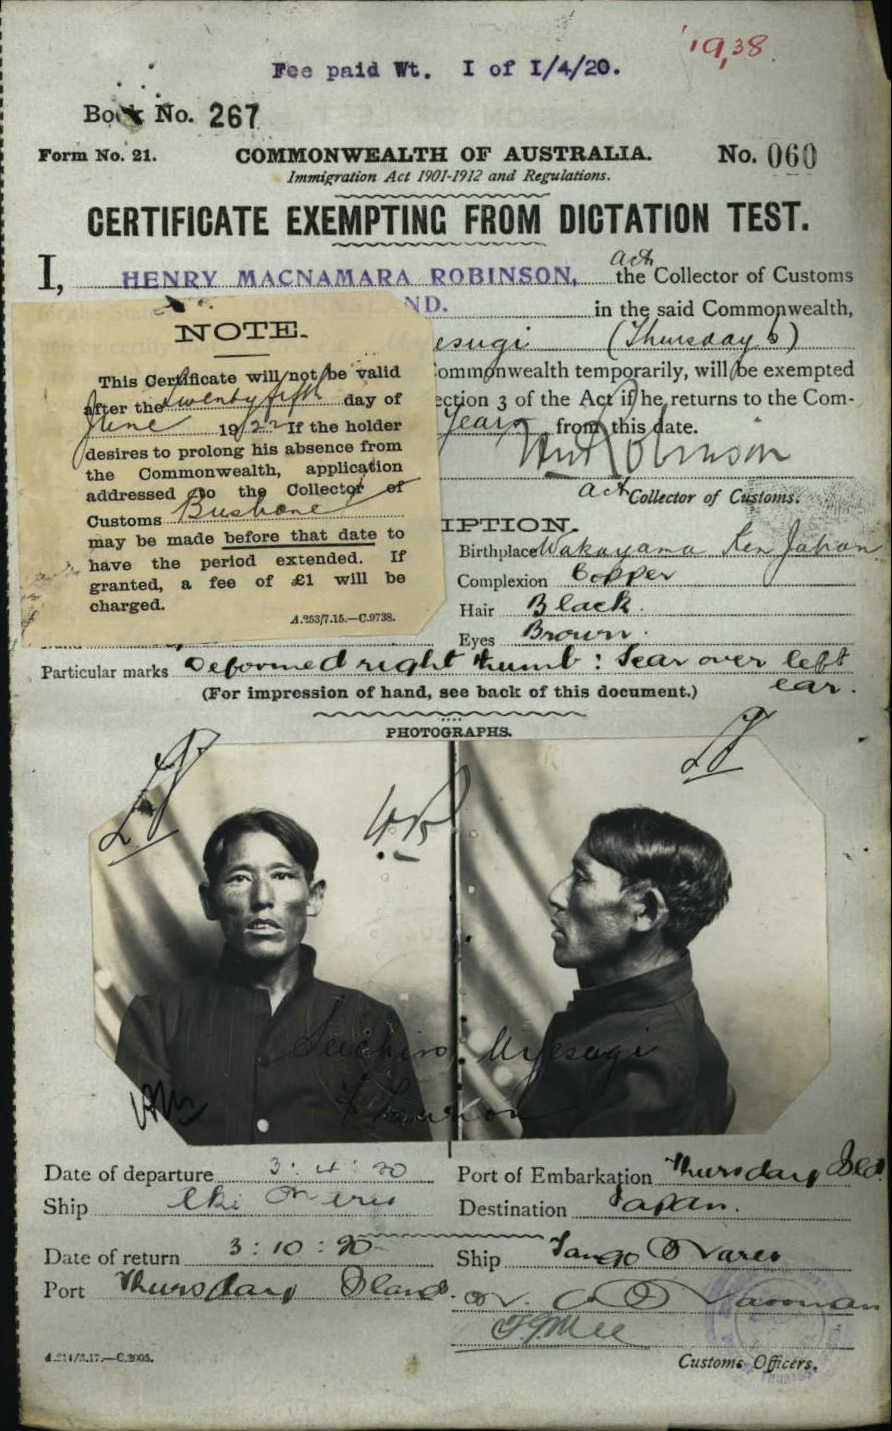 '19,38.
Fee paid Wt. I of I/4/20.
Book No. 267
Form No. 21. COMMONWEALTH OF AUSTRALIA. No. 060
Immigration Act 1901-1912 and Regulations.
CERTIFICATE EXEMPTING FROM DICTATION TEST.
act
I, HENRY MACNAMARA ROBINSON, the Collector of Customs
ND. in the said Commonwealth,
esugi (Thursday Is)
ommonwealth temporarily, will be exempted
ection 3 of the Act if he returns to the Com-
years from this date.
HM Robinson
act Collector of Customs.
NOTE.
This Certificate will not be valid
after the twenty fifth day of
June 1922 If the holder
desires to prolong his absence from
the Commonwealth, application
addressed to the Collector of
Customs Brisbane
may be made before that date to
have the period extended. If
granted, a fee of £1 will be
charged.
A.253/7.15.—C.9738.
IPTION.
Birthplace Wakayama Ken Japan
Complexion Copper
Hair Black.
Eyes Brown.
Particular marks Deformed right thumb: Scar over left
ear.
(For impression of hand, see back of this document.)
PHOTOGRAPHS.
Seichiro Uyesugi
Date of departure 3:4:20 Port of Embarkation Thursday Isld
Ship Aki Maru Destination Japan.
Date of return 3:10:20 Ship Tango Maru
Port Thursday Island.
A.214/3.17.—C.2005.
Customs Officers.